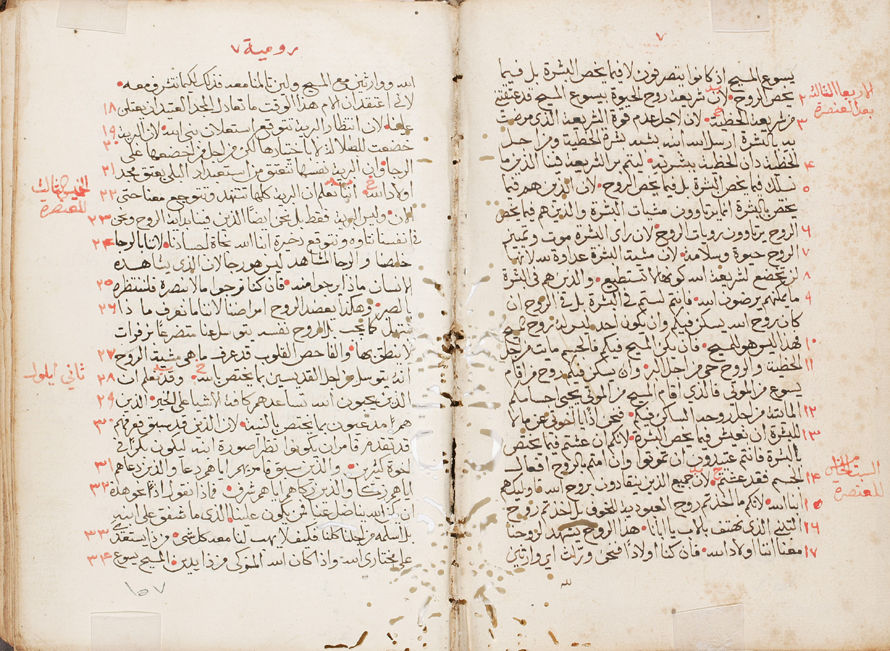 ٧
يسوع المسيح اذ كانوا يتصرفون لا فيما يخص البشرة بل فيما
٢ يخص الروح لان شريعة روح الحيوة بيسوع المسيح قد عتقتني
الاربعا الثالث
بعد العنصرة
٣ من شريعة الخطية لان لاجل عدم قوة الشريعة الذي مرضت
بالبشرة ارسل الله ابنه بشبه بشرة الخطية ومن اجل
٤ الخطية دان الخطية ببشرته ليتم بر الشريعة فينا الذين ما
٥ نسلك فيما يخص البشرة بل فيما يخص الروح لان الذين هم فيما
يختص بالبشرة انما يرتاوون مشيات البشرة والذين هم فيما يخص
٦ الروح يرتاوون رويات الروح لان راى البشرة موت وتمييز
٧ الروح حيوة وسلامة لان مشية البشرة عداوة لله لانها
٨ لن تخضع لشريعة الله كونها لا تستطيع والذين هم في البشرة
٩ ما يمكنهم يرضون الله فانتم لستم في البشرة بل في الروح ان
كان روح الله يسكن فيكم وان يكون احد ليس له روح المسيح
١٠ فهذا ليس هو للمسيح فان يكن المسيح فيكم فالجسم مايت من اجل
١١ الخطية والروح حي من اجل وان يسكن فيكم روح من اقام
يسوع من الموتى فالذي اقام المسيح من الموتى يحيي اجسامكم
١٢ المايتة من اجل روحه الساكن فيكم فنحن اذا يا اخوتي غرما لا
١٣ للبشرة ان نعيش فيما يخص البشرة لانكم ان عشتم فيما يختص
بالبشرة فانتم عتيدون ان تموتوا وان امتم بالروح افعال
السبت الخامس
للعنصرة
١٤ الجسم فقد عشتم لان جميع الذين ينقادون بروح الله فاوليك هم
١٥ ابنا الله لانكم ما اخذتم روح العبودية للخوف بل اخذتم روح
١٦ التبني الذي نهتف به ايها الاب يا ابانا هذا الروح يشهد لروحنا
١٧ معنا اننا اولاد الله فان كنا اولادا فنحن وراث اي وارثين
لله
رومية ٧
الله ووارثين مع المسيح ولين تالمنا معه فذلك لكيما نتشرف معه
١٨ لاني اعتقد ان الام هذا الوقت ما تعادل المجد العتيد ان يعتلن
١٩ لان انتظار البرية يتوقع استعلان بني الله لان البرية
٢٠ خضعت للبطالة لا باختيارها لكن من اجل من اخضعها على
٢١ الرجا وان البرية نفسها تنعتق من استعباد البلى بعتق مجد
الخميس الثالث
للعنصرة
٢٢ اولاد الله اننا نعلم ان البرية كلها تتنهد وتتوجع معنا حتى
٢٣ الان وليس البرية فقط بل نحن ايضا الذين فينا بداية الروح ونحن
٢٤ في انفسنا نتاوه ونتوقع ذخرة ابنا الله نجاة لجسادنا لاننا بالرجا
خلصنا والرجا المشاهد ليس هو رجا لان الذي يشاهده
٢٥ الانسان ماذا يرجوا منه فان كنا نرجوا ما لا نبصره فلننتظره
٢٦ بالصبر وهكذا يعضد الروح امراضنا لاننا ما نعرف ماذا
نبتهل كما يجب بل الروح نفسه يتوسل عنا متضرعا بزفرات
٢٧ لا ينطق بها والفاحص القلوب قد عرف ما هي مشية الروح
ثاني ايلول
٢٨ انه يتوسل من اجل القديسين بما يختص بالله وقد نعلم ان
٢٩ الذين يحبون الله تساعدهم كافة الاشيا على الخير الذين
٣٠ هم مدعيون بما يختص بالنية لان الذين قد سبق فعرفهم
قد تقدم فرقا من ان يكونوا نظرا صورة ابنه ليكون بكرا في
٣١ اخوة كثيرين والذين سبق فامرز اياهم دعا والذين دعاهم
٣٢ اياهم زكا والذين زكاهم اياهم شرف فاذا نقول اذا نحو هذه
ان كان الله يناضل عنا فمن يكون علينا الذي ما شفق على ابنه
٣٣ بل اسلمه من اجلنا كلنا فكيف لا يهب لنا معه كل شي من ذا يستعدي
٣٤ على مختاري الله واذا كان الله المزكي فمن ذا يدين المسيح يسوع